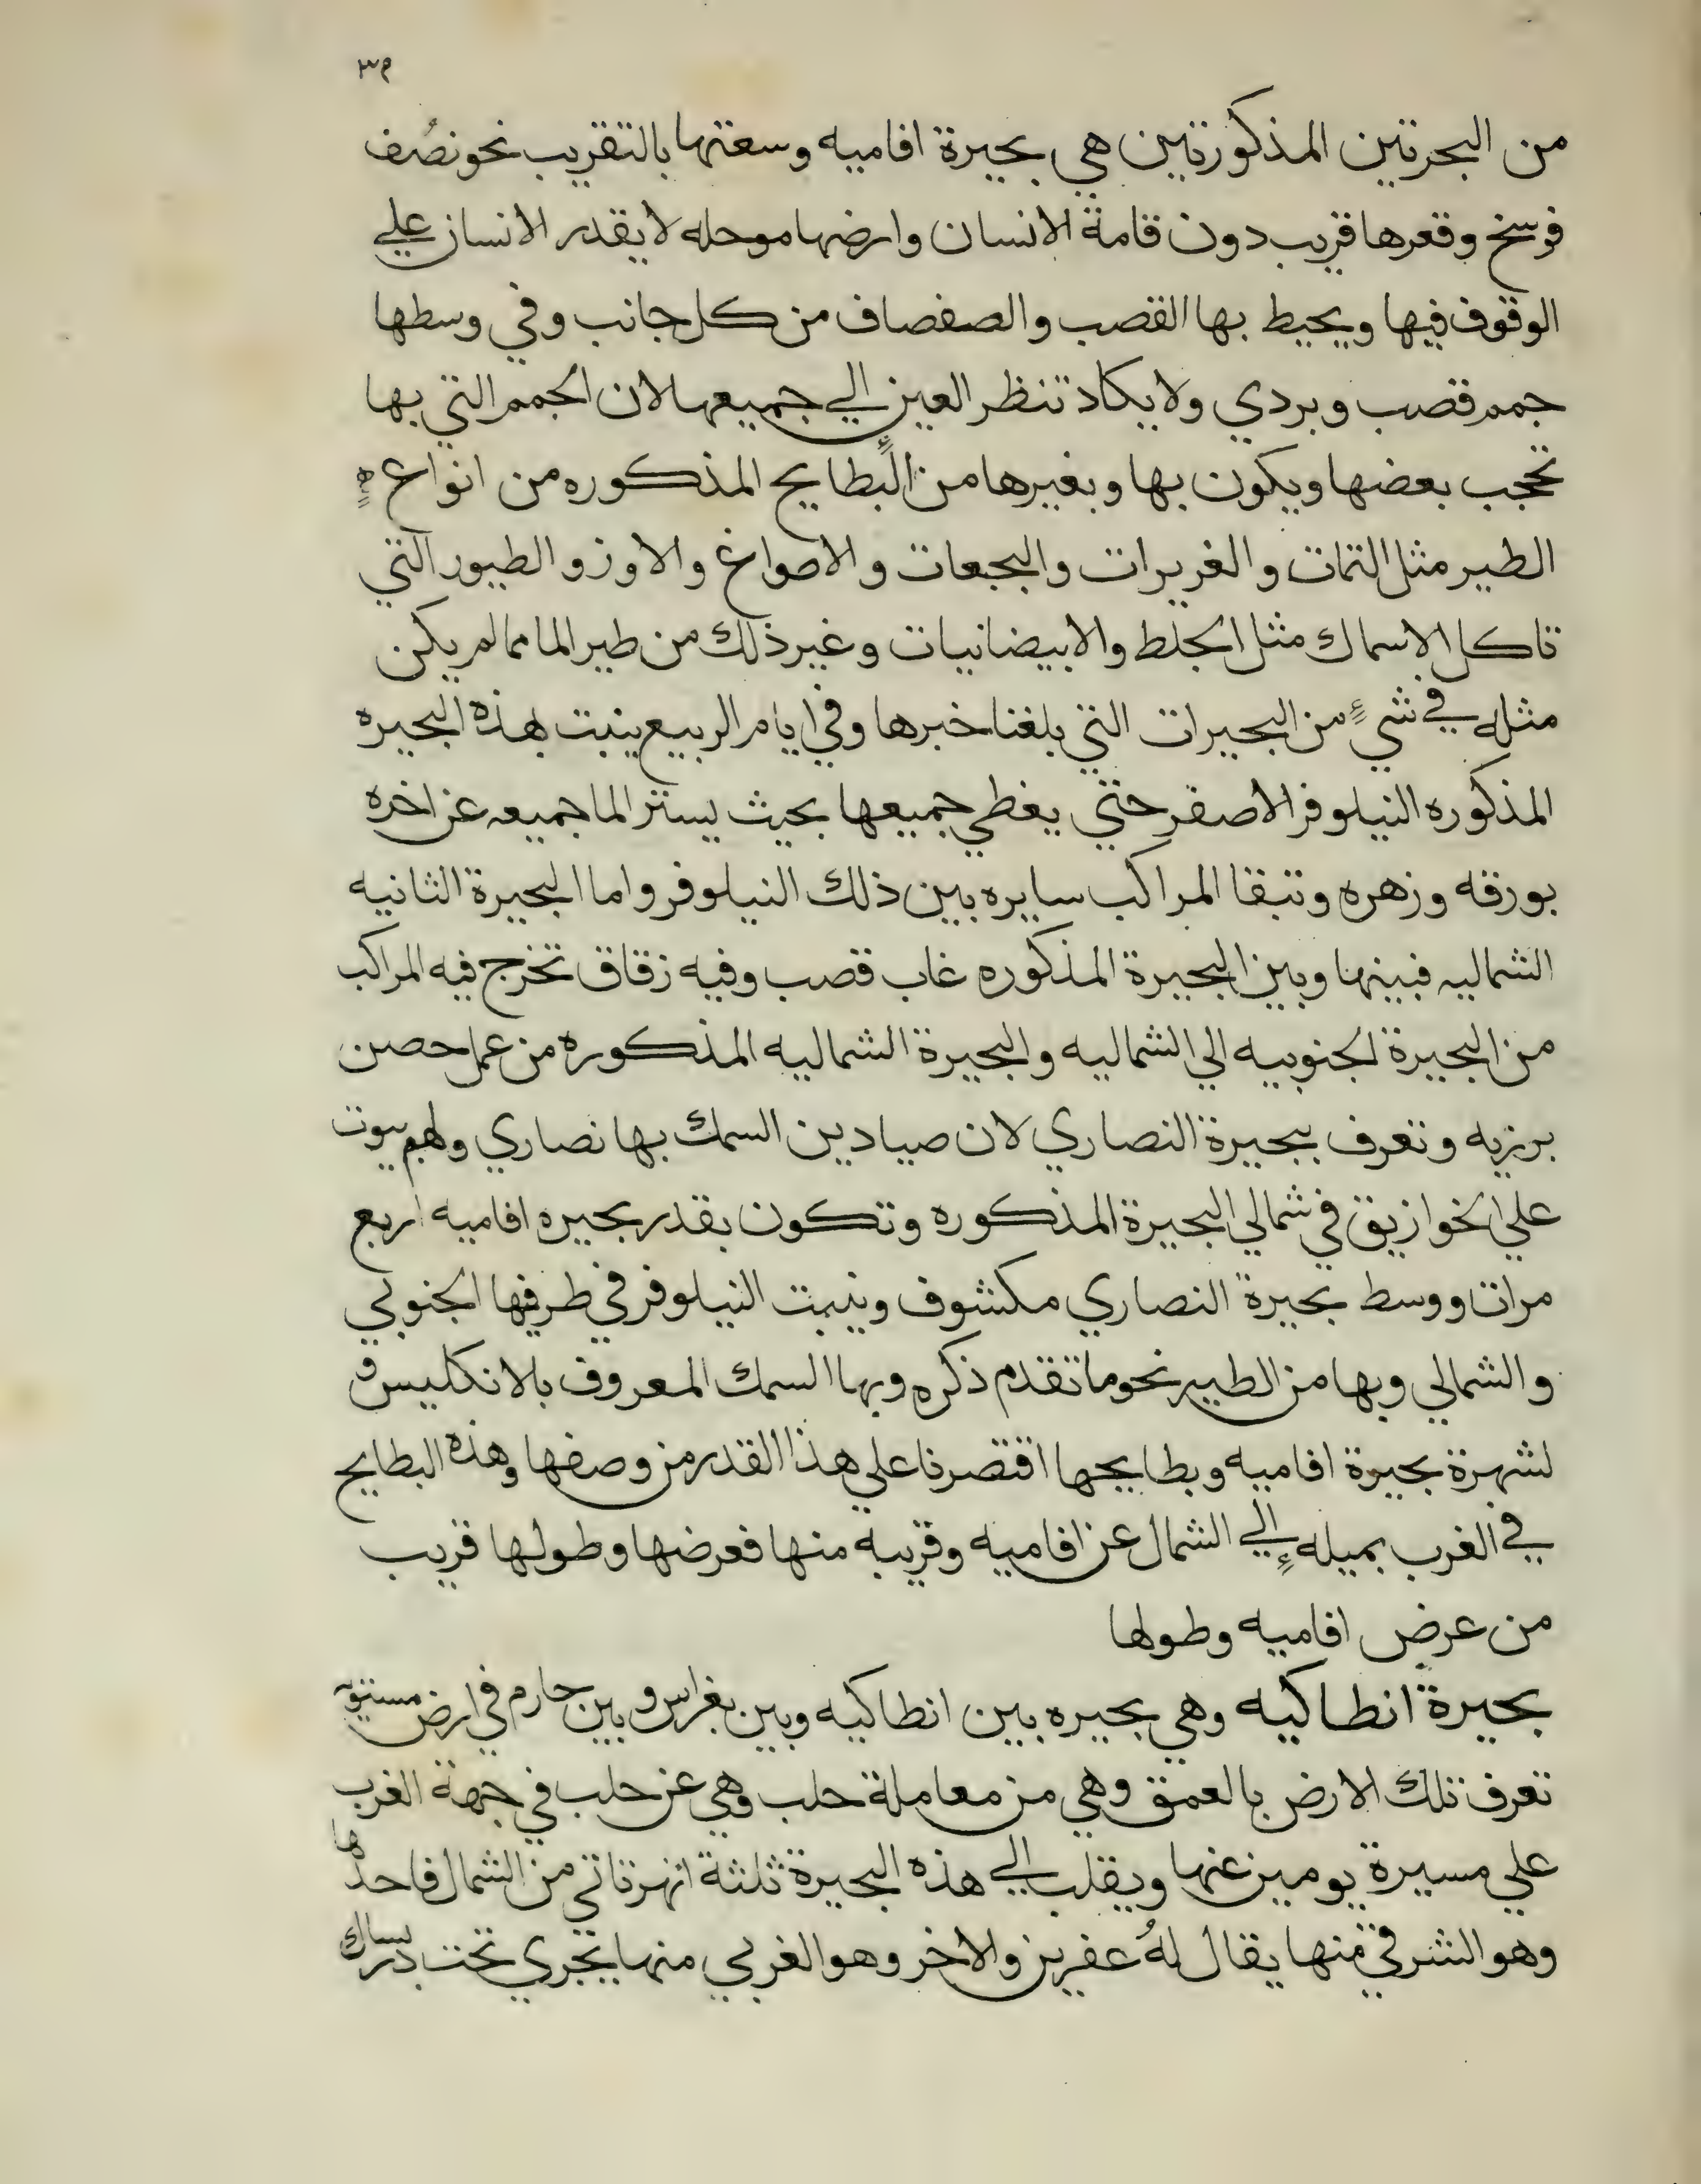 ٣٩
من البحرتين المذكورتين هي بحيرة افاميه وسعتها بالتقريب نحو نصف
فرسخ وقعرها قريب دون قامة الانسان وارضها موحله لا يقدر الانسان علي
الوقوف فيها ويحيط بها القصب والصفصاف من كل جانب وفي وسطها
جمم قصب وبردي ولا يكاد تنظر العين الي جميعها لان الجمم التي بها
تحجب بعضها ويكون بها وبغيرها من البطايح المذكوره من انواع
الطير مثل التمات والغريرات والبجعات والاصواغ والاوز والطيور التي
تاكل الاسماك مثل الجلط والابيضانيات وغير ذلك من طير الما مما لم يكن
مثله في شيءٍ من البحيرات التي بلغنا خبرها وفي ايام الربيع ينبت بهذه البحيره
المذكوره النيلوفر الاصفر حتي يغطي جميعها بحيث يستتر الما جميعه عن اخره
بورقه وزهره وتبقا المراكب سايره بين ذلك النيلوفر واما البحيرة الثانيه
الشماليه فبينها وبين البحيرة المذكوره غاب قصب وفيه زقاق تخرج فيه المراكب
من البحيرة الجنوبيه الي الشماليه والبحيرة الشماليه المذكوره من عمل حصن
برزيه وتعرف ببحيرة النصاري لان صيادين السمك بها نصاري ولهم بيوت
علي الخوازيق في شمالي البحيرة المذكوره وتكون بقدر بحيره افاميه اربع
مرات ووسط بحيرة النصاري مكشوف وينبت النيلوفر في طرفيها الجنوبي
والشمالي وبها من الطير نحو ما تقدم ذكره وبها السمك المعروف بالانكليس و
لشهرة بحيرة افاميه وبطايحها اقتصرنا علي هذا القدر من وصفها وهذه البطايح
في الغرب بميله إلي الشمال عن افاميه وقريبه منها فعرضها وطولها قريب
من عرض افاميه وطولها
بحيرة انطاكيه وهي بحيره بين انطاكيه وبين بغراس وبين حارم في ارض مستويه
تعرف تلك الارض بالعمق وهي من معاملة حلب وهي عن حلب في جهة الغرب
علي مسيرة يومين عنها ويقلب الي هذه البحيرة ثلثة انهر تاتي من الشمال فاحدها
وهو الشرقي منها يقال لهُ عفرين والاخر وهو الغربي منها يجري تحت دربساك